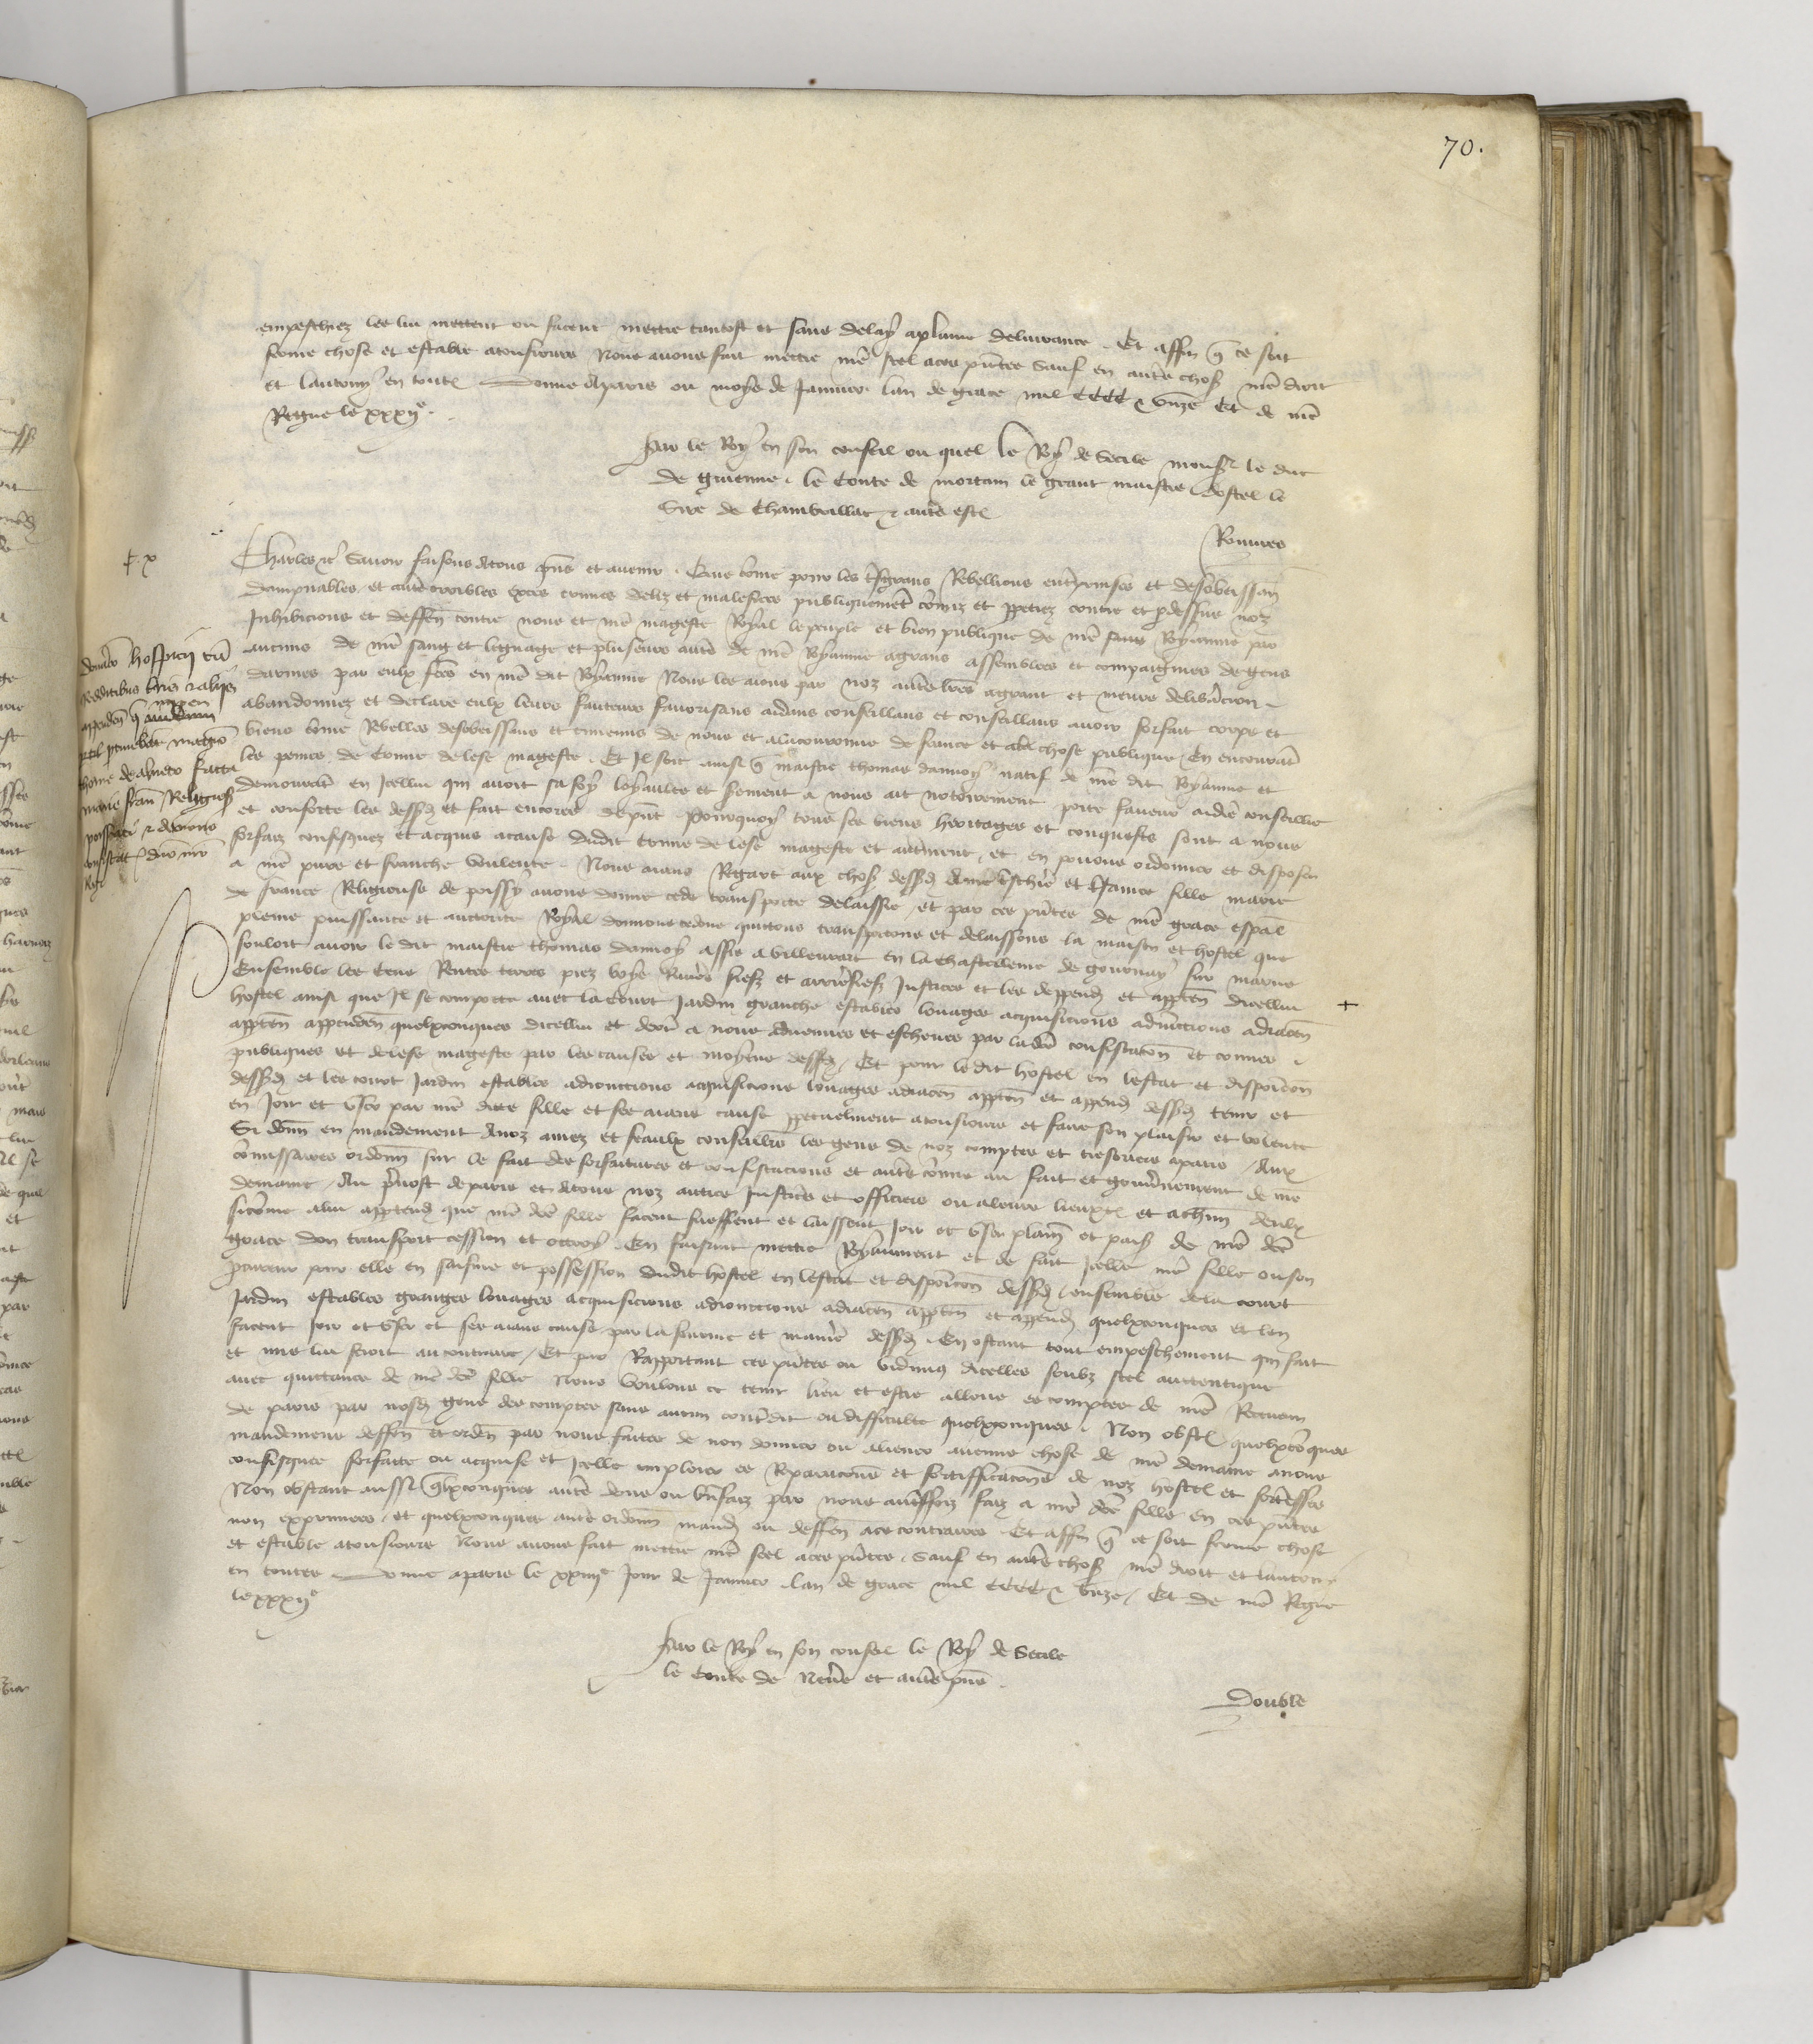 70.
empeschiez les lui mettent ou facent mettre tantost et sans delay a plaine delivrance. Et affin q̃ ce soit
ferme chose et estable a tousiours Nous avons fait mettre nr̃e seel a ces pñtes Sauf en autres choses nr̃e droit
et lautruy en toutes Donne a Paris ou moys de Janvier lan de grace mil CCCC & unze Et de nr̃e
Regne le xxxije.
Par le Roy en son conseil ou quel le Roy de Secile mons̃r le duc
de Guienne, le Conte de Mortain le grant maistre dostel le
Sire de Chambrillac & autres est
Rouvres
Charles &c̃ Savoir faisons a tous p̃ns et avenir. Que cõme pour les t̃sgrans Rebellions entreprinses et desobeissañ
dampnables et autres orribles exces crimes deliz et malefices publiquement cõmis et ppetrez contre et p dessus noz
Inhibicions et deffen̄ contre nous et nr̃e mageste Royal le peuple et bien publique de nr̃e Royaume par
aucuns de nr̃e sang et lignage et pluseurs autres de nr̃e Royaume a grans assemblees et compaignies de gens
darmes par eulx fc̃es en nr̃e dit Royaume Nous les aions par noz autres lr̃es a grant et meure delib̃acion
abandonnez et declare eulx leurs fauteurs favorisans aidans conseillans et confortans avoir forfait corps et
biens cõme Rebelles desobeissans et ennemis de nous et a la couronne de france et a la chose publique En encourant
les peines de crime de lese mageste. Et Il soit ainsi q̃ maistre Thomas Daunoy natif de nr̃e dit Royaume et
demourant en Icellui qui avoit sa foy loyaultes et serment a nous ait notoirement porte faveur aidie conseillie
et conforte les dessusd et fait encores de pñt Pourquoy tous ses biens heritages et conquests sont a nous
forfaiz confisquez et acquis a cause dudit crime de lese mageste et autrement, et en povons ordonner et disposer
a nr̃e pure et franche voulente. Nous aians Regart aux choses dessusd A nr̃e t̃schiere et t̃samee fille Marie
de france Religieuse de Poissy avons donne cede transporte delaissie et par ces pñtes de nr̃e grace especial
pleine puissance et auctorite Royal donnons cedons quittons transportons et delaissons la maison et hostel que
souloit avoir le dit maistre Thomas Daunoy assis a Villeurart en la Chastellenie de Gournay sur Marne
Ensemble les Cens Rentes terres prez boys Rivieres fiefz et arrierefiefz Justices et les deppend et apptem̃ dicellui
hostel ainsi que Il se comporte avec la court Jardin granche estables louages acquisicions adiunctions adiacen̄
appten̄ appenden̄ quelxconques dicellui et droit a nous advenues et escheues par ladc̃e confiscacion et crimes
publiques et de lese mageste par les causes et moyens dessusd. Et pour le dit hostel en lestat et disposicion
dessusd et les court Jardin estables adionccions acquisicions louages adiacen̄ appten̄ et append dessusd tenir et
en Joir et user par nr̃e dicte fille et ses aians cause ppetuelment a tousiours et faire son plaisir et volente
Si donn̄ en mandement A noz amez et feaulx conseillers les gens de noz comptes et tresoriers a Paris, Aux
cõmissaires ordonn̄ sur le fait des forfaitures et confiscacions et autres cõmis au fait et gouvernement de nr̃e
demaine, Au prevost de Paris et a tous noz autres Justiciers et officiers ou a leurs lieuxten̄ et a chũn deulx
sicõme a lui apptendra que nr̃e dc̃e fille facent sueffrent et laissent Joir et user plain̄ et paisib de nr̃e dc̃e
grace don transport cession et octroy. En faisant mettre Royaument et de fait Icelle nr̃e fille ou son
procureur pour elle en saisine et possession dudit hostel en lestat et disposicion dessusd ensemble de la court
Jardin estables granges louages acquisicions adionccions adiacen̄ appten̄ et append quelxconques et len
facent Joir et user et ses aians cause par la forme et maniere dessusd. En ostant tout empeschement qui fait
et mis lui seroit au contraire, Et par Rapportant ces pñtes ou vidimus dicelles soubz seel auttentique
avec quittance de nr̃e dc̃e fille Nous voulons ce tenir lieu et estre alloue es comptes de nr̃e Receveur
de Paris par nosd gens des comptes sans aucun contredit ou difficulte quelxconques. Non obst quelxcõques
mandemens deffen̄ et orden̄ par nous faites de non donner ou aliener aucune chose de nr̃e demaine a nous
confisquee forfaicte ou acquise et Icelle emploier es Reparacions et fortifficacions de noz hostel et forteresses
Non obstant aussi q̃lxconques autres dons ou bn̄faiz par nous autresfoiz faiz a nr̃e dc̃e fille en ces pñtes
non exprimees, et quelxconques autres ordonn̄ mand ou deffen̄ a ce contraires. Et affin q̃ ce soit ferme chose
et estable a tousiours Nous avons fait mettre nr̃e seel a ces pñtes. Sauf en autres choses nr̃e droit et lautruy
en toutes. Donne a Paris le xxiiije Jour de Janvier lan de grace mil CCCC & unze, Et de nr̃e Regne
le xxxije
Par le Roy en son conseil le Roy de Secile
le Conte de Nevers et autres p̃ns.
Double
hospicij cum
Redditibus terris & alijs
magistro
thome de
marie francie Religiose
+